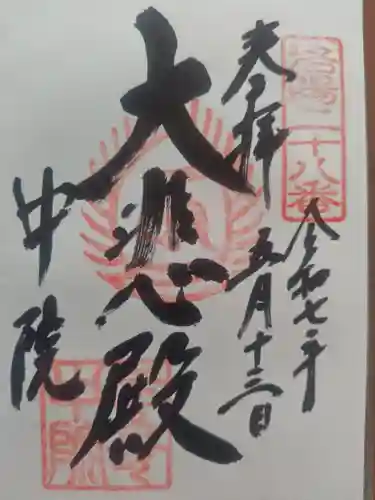 奉拝
令和七年
五月十三日
大悲心殿
中院
二十八番